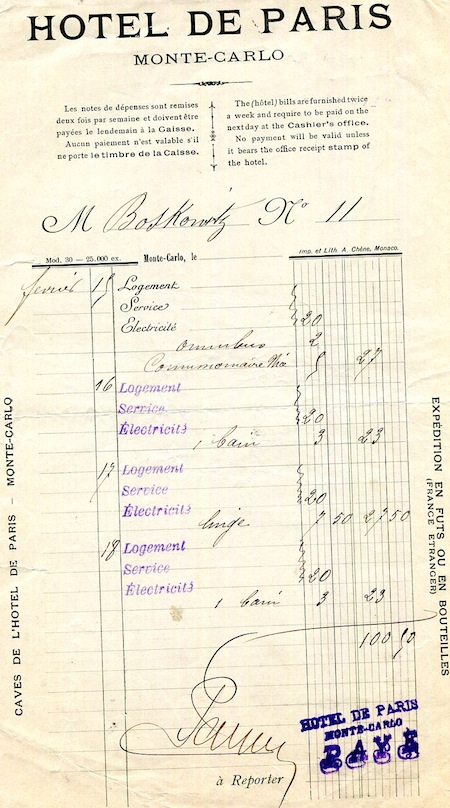 HOTEL DE PARIS
MONTE-CARLO
Les notes de dépenses sont remises
deux fois par semaine et doivent être
payées le lendemain à la Caisse.
Aucun paiement n'est valable s'il
ne porte le timbre de la Caisse.
The (hôtel) bills are furnished twice
a week and require to be paid on the
next day at the Cashier's office.
No payment will be valid unless
it bears the office receipt stamp of
the hotel.
M Boskowitz No 11
Mod. 30 — 25.000 ex. Monte-Carlo, le
Imp. et Lith. A. Chêne, Monaco.
février 15 Logement
Service
Electricité 20
omnibus 2
Commissionaire 5 27
16 Logement
Service
Électricité 20
1 bain 3 23
17 Logement
Service
Électricité 20
linge 7 50 27 50
18 Logement
Service
Électricité 20
1 bain 3 23
100 50
HOTEL DE PARIS
MONTE-CARLO
PAYÉ
à Reporter
CAVES DE L'HOTEL DE PARIS - MONTE-CARLO
EXPÉDITION EN FUTS OU EN BOUTEILLES
(FRANCE ETRANGER)